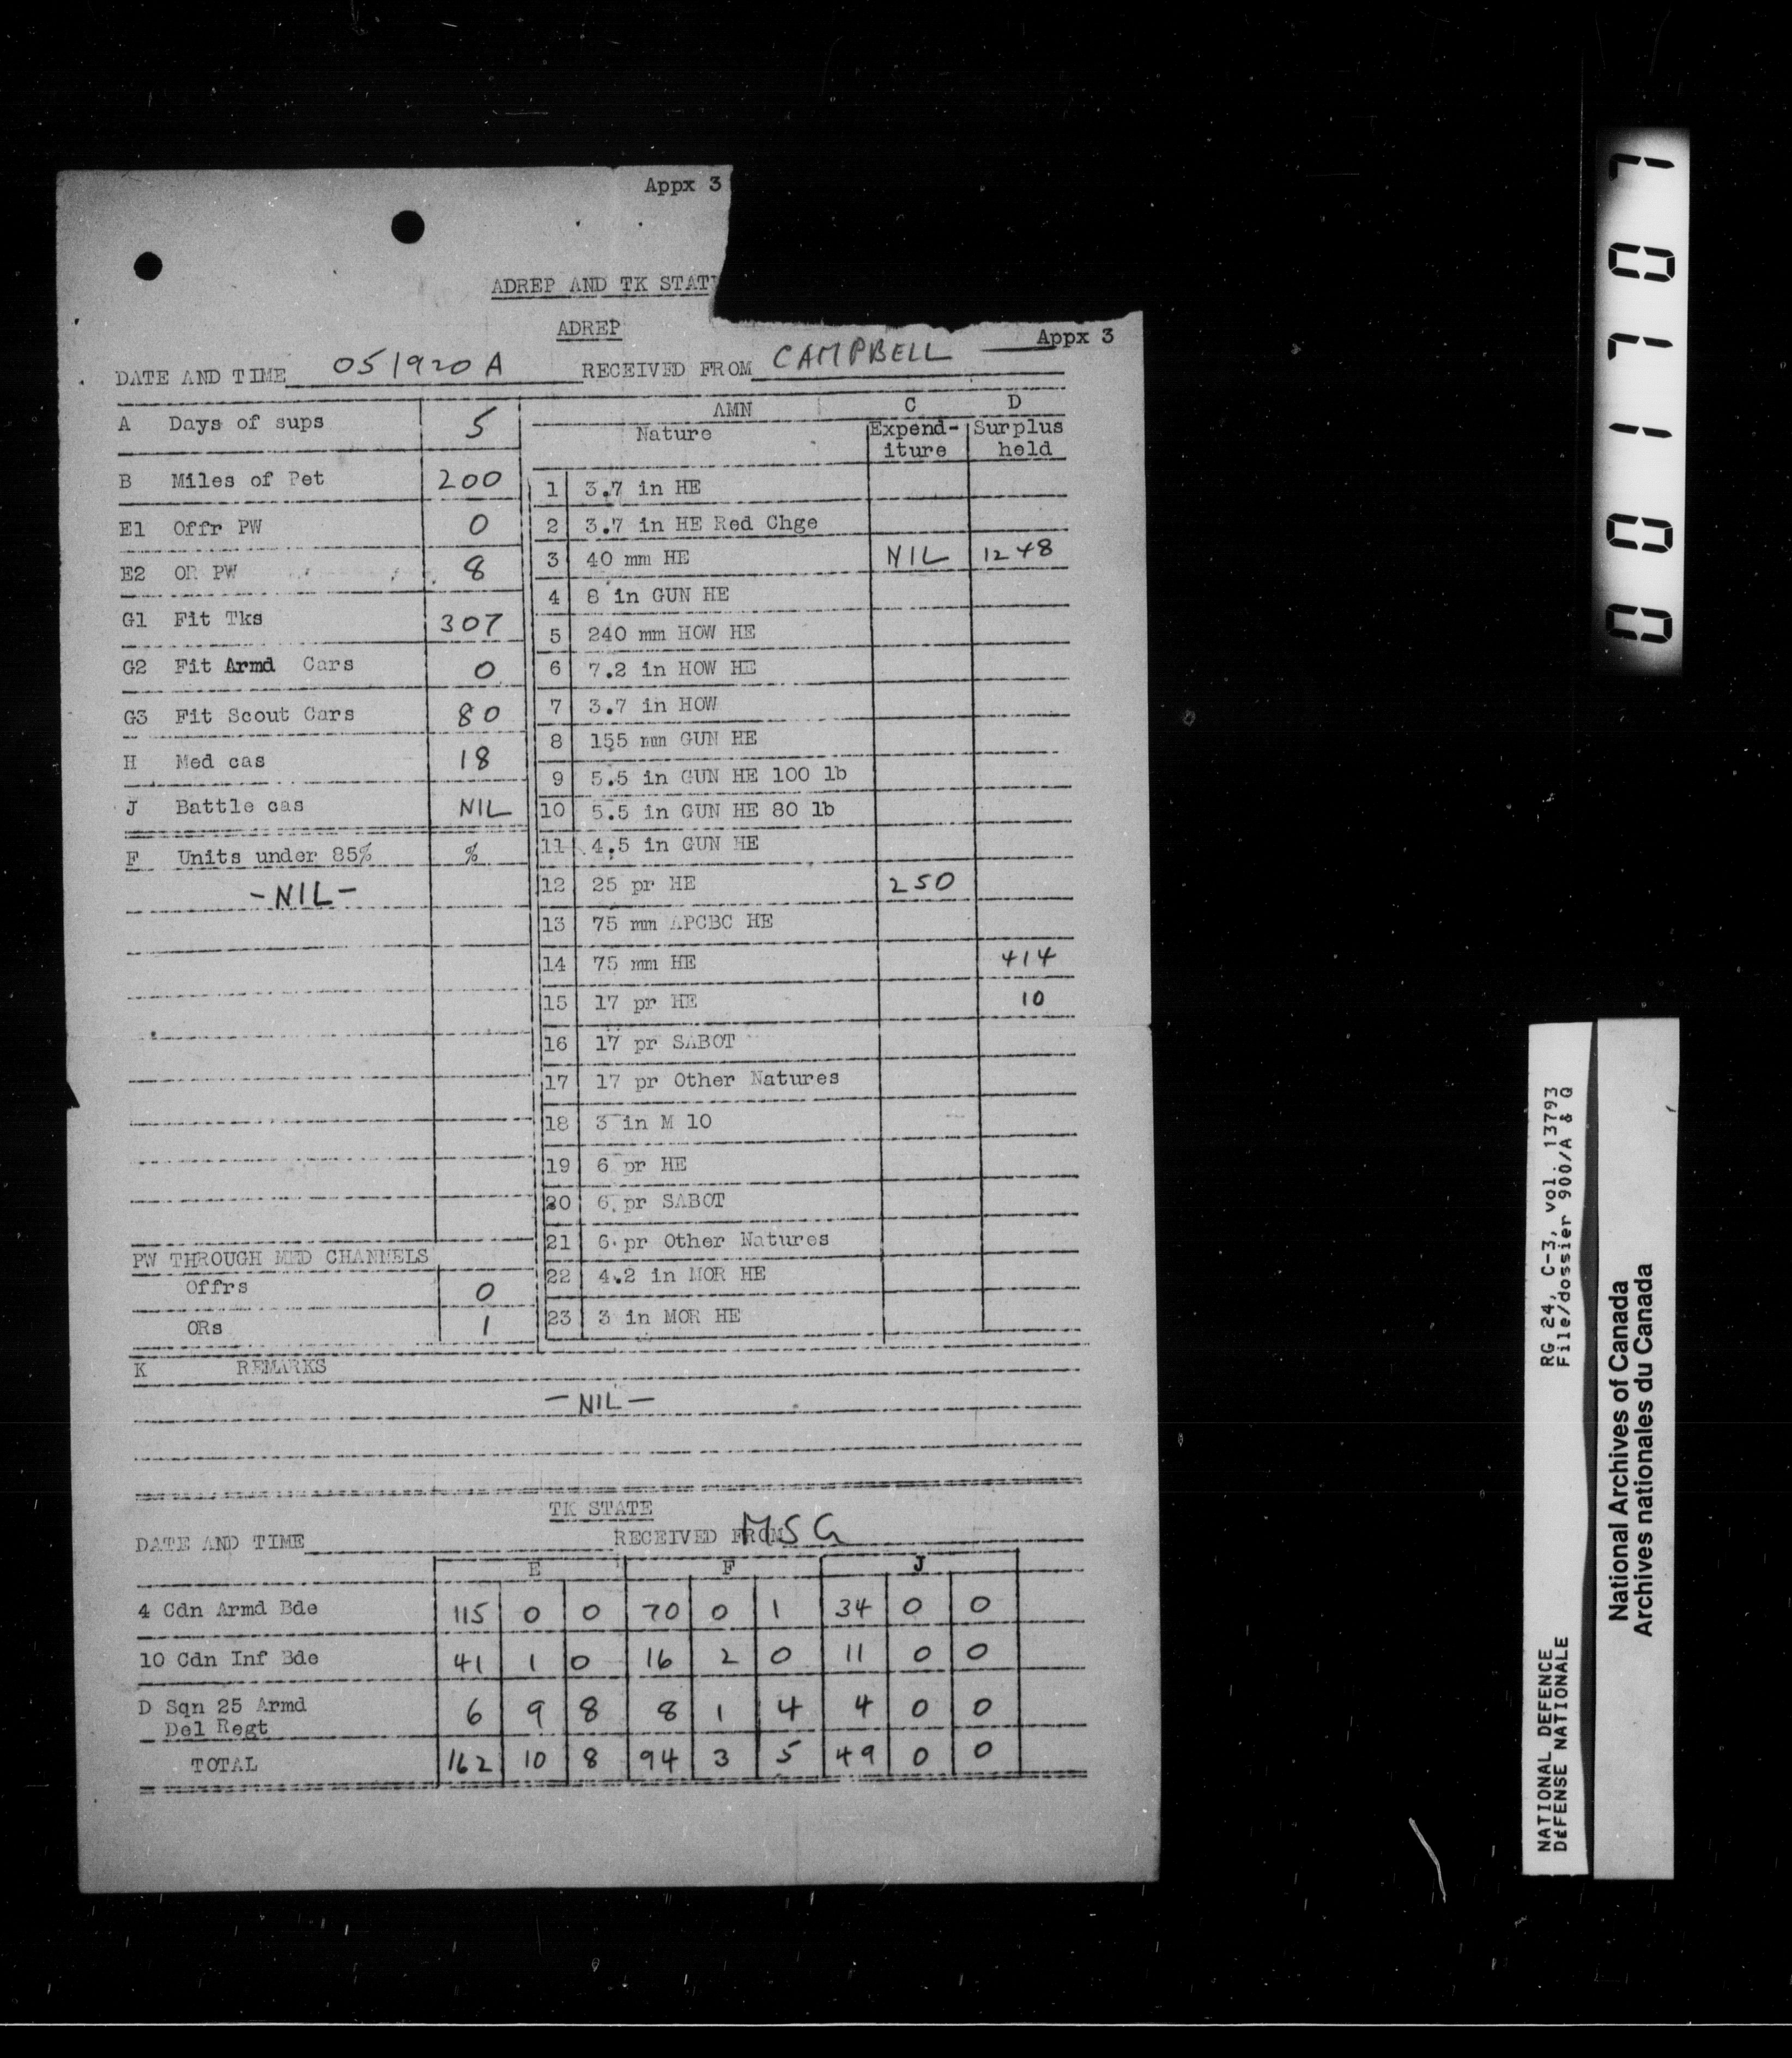 Appx 3
ADREP AND TK STAT
ADREP
Appx 3
DATE AND TIME 051920 A RECEIVED FROM CAMPBELL
A Days of sups 5
B Miles of Pet 200
E1 Offr PW 0
E2 OR PW 8
G1 Fit Tks 307
G2 Fit Armd Cars 0
G3 Fit Scout Cars 80
H Med cas 18
J Battle cas NIL
F Units under 85% %
- NIL -
PW THROUGH MED CHANNELS
Offrs 0
ORs 1
AMN C D
Nature Expend- Surplus
iture held
1 3.7 in HE
2 3.7 in HE Red Chge
3 40 mm HE NIL 1248
4 8 in GUN HE
5 240 mm HOW HE
6 7.2 in HOW HE
7 3.7 in HOW
8 155 mm GUN HE
9 5.5 in GUN HE 100 lb
10 5.5 in GUN HE 80 lb
11 4.5 in GUN HE
12 25 pr HE 250
13 75 mm APCBC HE
14 75 mm HE 414
15 17 pr HE 10
16 17 pr SABOT
17 17 pr Other Natures
18 3 in M 10
19 6 pr HE
20 6 pr SABOT
21 6 pr Other Natures
22 4.2 in MOR HE
23 3 in MOR HE
K REMARKS
- NIL -
TK STATE
DATE AND TIME RECEIVED FROM MSG
E F J
4 Cdn Armd Bde 115 0 0 70 0 1 34 0 0
10 Cdn Inf Bde 41 1 0 16 2 0 11 0 0
D Sqn 25 Armd
Del Regt 6 9 8 8 1 4 4 0 0
TOTAL 162 10 8 94 3 5 49 0 0
001707
NATIONAL DEFENCE RG 24, C-3, vol. 13793
DéFENSE NATIONALE File/dossier 900/A & Q
National Archives of Canada
Archives nationales du Canada